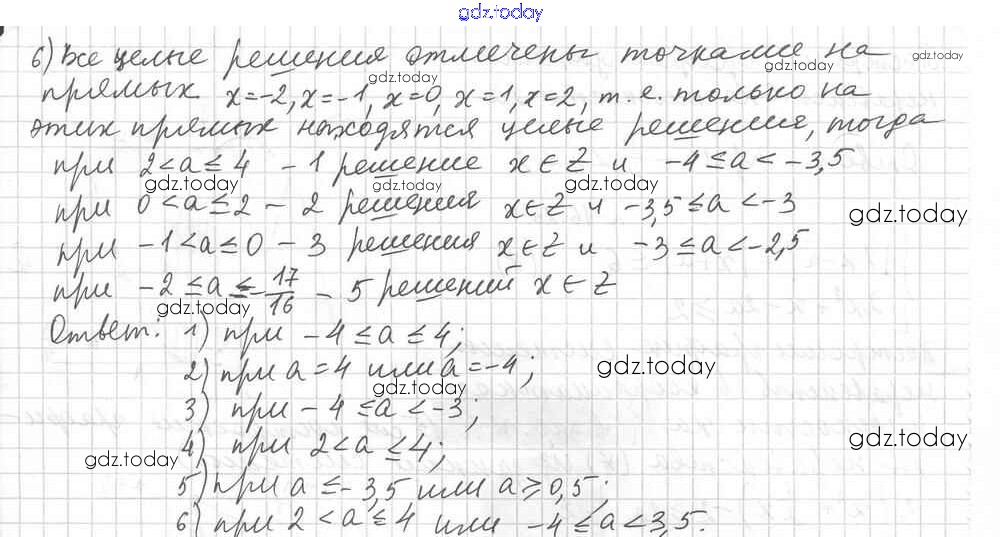 gdz.today
6) Все целые решения отмечены точками на
gdz.today gdz.today gdz.today
прямых x=-2, x=-1, x=0, x=1, x=2, т.е. только на
этих прямых находятся целые решения, тогда
при 2<a≤4 - 1 решение x∈Z и -4≤a<-3,5
gdz.today gdz.today gdz.today
при 0<a≤2 - 2 решения x∈Z и -3,5≤a<-3
gdz.today
при -1<a≤0 - 3 решения x∈Z и -3≤a<-2,5
при -2≤a≤-17/16 - 5 решений x∈Z
gdz.today
Ответ: 1) при -4≤a≤4;
2) при a=4 или a=-4;
gdz.today gdz.today
3) при -4≤a<-3;
4) при 2<a≤4;
gdz.today gdz.today
5) при a≤-3,5 или a≥0,5;
6) при 2<a≤4 или -4≤a<3,5.